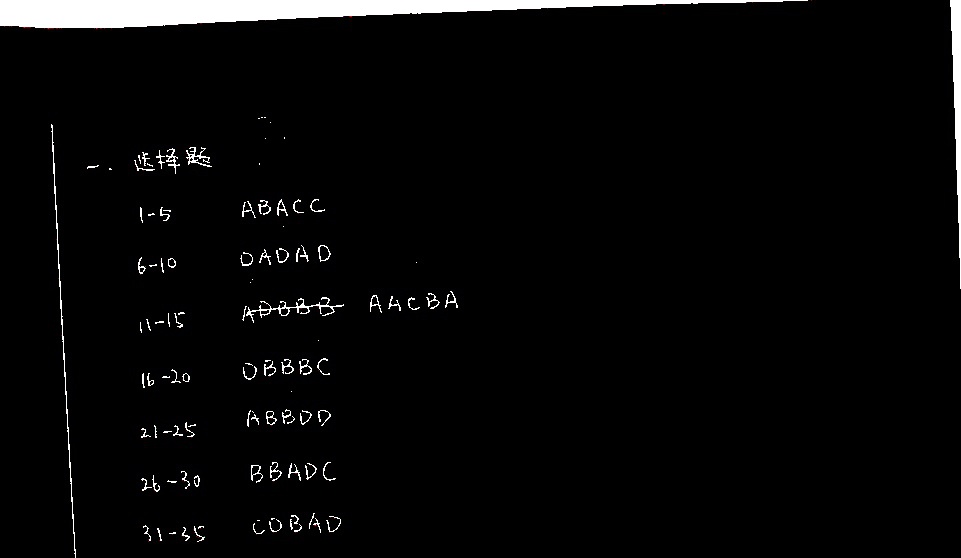 一. 选择题
1-5 ABACC
6-10 DADAD
11-15 ADBBB AACBA
16-20 DBBBC
21-25 ABBDD
26-30 BBADC
31-35 CDBAD